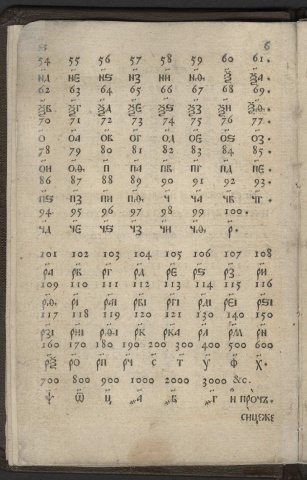 ѕ҃ 6
54 55 56 57 58 59 60 61.
н҃д н҃е н҃ѕ н҃з н҃и н҃.ѳ. ѯ҃ ѯ҃а.
62 63 64 65 66 67 68 69.
ѯ҃в ѯ҃г ѯ҃д ѯ҃е ѯ҃ѕ ѯ҃з ѯ҃и ѯ҃.ѳ.
70 71 72 73 74 75 76 77.
о҃ о҃а о҃в о҃г о҃д о҃е о҃ѕ о҃з.
78 79 80 81 82 83 84 85.
о҃и о҃.ѳ. п҃ п҃а п҃в п҃г п҃д п҃е.
86 87 88 89 90 91 92 93.
п҃ѕ п҃з п҃и п҃.ѳ. ч҃ ч҃а ч҃в ч҃г.
94 95 96 97 98 99 100.
ч҃д ч҃е ч҃ѕ ч҃з ч҃и ч҃.ѳ. р҃.
101 102 103 104 105 106 107 108
р҃а р҃в р҃г р҃д р҃е р҃ѕ р҃з р҃и
109 110 111 112 113 114 115 116
р҃.ѳ. р҃і р҃аі р҃ві р҃гі р҃ді р҃еі р҃ѕі
117 118 119 120 121 130 140 150
р҃зі р҃иі р҃.ѳі р҃к р҃ка р҃л р҃м р҃н
160 170 180 190 200 300 400 500 600
р҃ѯ р҃о р҃п р҃ч с҃ т҃ у҃ ф҃ х҃.
700 800 900 1000 2000 3000 &c.
ѱ҃ ѿ҃ ц҃ ҂а ҂в ҂г и прочъ.
сицеже